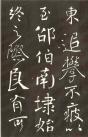 東追攀不疲以
至邵伯南埭始
終之意良有可